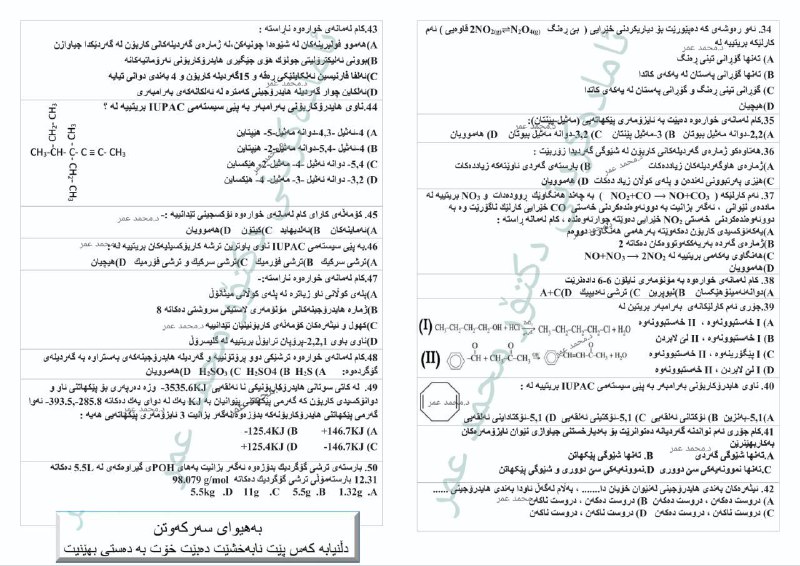 34. ئەو رەوشەی کە دەپێورێت بۆ دیاریکردنی خێرایی ( بێ ڕەنگ N₂O₄(g)⇌2NO₂(g) قاوەیی ) ئەم
کارلێکە بریتییە لە
A) تەنها گۆڕانی تینی ڕەنگ
B) تەنها گۆڕانی پەستان لە یەکەی کاتدا
C) گۆڕانی تینی ڕەنگ و گۆڕانی پەستان لە یەکەی کاتدا
D) هیچیان
35. کام لەمانەی خوارەوە دەبێت بە ئایزۆمەری پێکهاتەیی (مەثیل-پێنتان):
A) 2,2-دوانە مەثیل بیوتان B) 3-مەثیل پێنتان C) 3,2-دوانە مەثیل بیوتان D) هەموویان
36. هەتاوەکو ژمارەی گەردیلەکانی کاربۆن لە شێوگی گەردیدا زۆربێت :
A) ژمارەی هاوگەردیلەکان زیاددەکات B) بارستەی گەردی ئاوێتەکە زیاددەکات
C) هێزی پەرتبوونی لەندەن و پلەی کوڵان زیاد دەکات D) هەموویان
37. ئەم کارلێکە ( NO₂+CO ⟶ NO+CO₂ ) بە چەند هەنگاوێک ڕوودەدات و NO₃ بریتییە لە
ماددەی ئێوانی ، ئەگەر بزانیت بە دووئەوەندەکردنی خەستی CO خێرایی کارلێک ناگۆڕێت وە بە
دووئەوەندەکردنی خەستی NO₂ خێرایی دەبێتە چوارئەوەندە ، کام لەمانە ڕاستە :
A) یەکەنۆکسیدی کاربۆن دەکەوێتە بەرهەمی هەنگاوی دووەم
B) ژمارەی گەردە بەریەککەوتووەکان دەکاتە 2
C) هەنگاوی یەکەمی بریتییە لە NO+NO₃ ⟶ 2NO₂
D) هەموویان
38. کام لەمانەی خوارەوە بە مۆنۆمەری نایلۆن 6-6 دادەنرێت
A) دوانەئەمینۆهێکسان B) ئیوپرین C) ترشی ئەدیپیک D) A+C
39. جۆری ئەم کارلێکانەی بەرامبەر بریتین لە
A) I خەستبوونەوە ، II خەستبوونەوە
B) I خەستبوونەوە ، II لێ لابردن
C) I پێگۆڕینەوە ، II خەستبوونەوە
D) I لێ لابردن ، II خەستبوونەوە
(I) CH₃-CH₂-CH₂-CH₂-OH + HCl ⟶ CH₃-CH₂-CH₂-CH₂-Cl + H₂O
(II)
40. ناوی هایدرۆکاربۆنی بەرامبەر بە پێی سیستەمی IUPAC بریتییە لە :
A) 5,1-بەنزین B) ئۆکتانی ئەلقەیی C) 5,1-ئۆکتینی ئەلقەیی D) 5,1-ئۆکتادایینی ئەلقەیی
41. کام جۆری ئەم نواندنە گەردیانە دەتوانرێت بۆ بەدیارخستنی جیاوازی نێوان ئایزۆمەرەکان
بەکاربهێنرێن
A. تەنها شێوگی گەردی B. تەنها شێوگی پێکهاتن
C. تەنها نمونەیەکی سێ دووری D. نمونەیەکی سێ دووری و شێوگی پێکهاتن
42. ئیثەرەکان بەندی هایدرۆجینی لەنێوان خۆیان دا....... ، بەلام لەگەڵ ئاودا بەندی هایدرۆجینی ......
A) دروست دەکەن ، دروست دەکەن B) دروست دەکەن ، دروست ناکەن
C) دروست ناکەن ، دروست دەکەن D) دروست ناکەن ، دروست ناکەن
43. کام لەمانەی خوارەوە ناراستە :
A) هەموو فولیرینەکان لە شێوەدا چونیەکن،لە ژمارەی گەردیلەکانی کاربۆن لە گەردێکدا جیاوازن
B) بوونی ئەلیکترۆنی جولۆک هۆی جێگیری هایدرۆکاربۆنی ئەرۆماتیەکانە
C) ئەلفا فارنیسین ئەلکاینێکی ڕەقە و 15گەردیلە کاربۆن و 4 بەندی دوانی تیایە
D) ئەلکاین چوار گەردیلە هایدرۆجینی کەمترە لە ئەلکانەکەی بەرامبەری
44. ناوی هایدرۆکاربۆنی بەرامبەر بە پێی سیستەمی IUPAC بریتییە لە ؟
A) 4-ئەثیل -4,3-دوانە مەثیل-5- هێپتاین
B) 4-ئەثیل -5,4-دوانە مەثیل-2- هێپتاین
C) 5,4- دوانە ئەثیل -4- مەثیل -2- هێکساین
D) 3,2- دوانە ئەثیل -3- مەثیل -4- هێکساین
CH₂- CH₃
CH₃-CH- C - C ≡ C- CH₃
45. کۆمەڵەی کارای کام لەمانەی خوارەوە ئۆکسجینی تێدانییە :-
A) ئەمایلەکان B) ئەلدیهاید C) کیتۆن D) هەموویان
46. بە پێی سیستەمی IUPAC ناوی باوترین ترشە کاربۆکسیلیەکان بریتییە لە :
A) ترشی سرکیک B) ترشی فۆرمیک C) ترشی سرکیک و ترشی فۆرمیک D) هیچیان
47. کام لەمانەی خوارەوە ناراستە :-
A) پلەی کوڵانی ئاو زیاترە لە پلەی کوڵانی میثانۆڵ
B) ژمارە هایدرۆجینەکانی مۆنۆمەری لاستیکی سروشتی دەکاتە 8
C) کهول و ئیثەرەکان کۆمەڵەی کاربۆنیلیان تێدانییە
D) ناوی باوی 2,2,1-پرۆپان ترایۆڵ بریتییە لە گلیسرۆڵ
48. کام لەمانەی خوارەوە ترشێکی دوو پرۆتۆنییە و گەردیلە هایدرۆجینەکەی بەستراوە بە گەردیلەی
گۆگردەوە: A) H₂S B) H₂SO4 C) H₂SO₃ D) هەموویان
49. لە کاتی سوتانی هایدرۆکاربۆنێکی نا ئەلقەیی 3535.6KJ- وزە دەرپەڕی بۆ پێکهاتنی ئاو و
دوانۆکسیدی کاربۆن کە گەرمی پێکهاتنی بێوانیان بە KJ یەک لە دوای یەک دەکاتە 285.8-,393.5- ئەوا
گەرمی پێکهاتنی هایدرۆکاربۆنەکە بدۆزەوە ئەگەر بزانیت 3 ئایزۆمەری پێکهاتەیی هەیە :
A) +146.7KJ B) -125.4KJ
C) -146.7KJ D) +125.4KJ
50. بارستەی ترشی گۆگردیک بدۆزەوە ئەگەر بزانیت بەهای POHی گیراوەکەی لە 5.5L دەکاتە
12.31 بارستەمۆڵی ترشی گۆگردیک دەکاتە 98.079 g/mol
A. 1.32g B. 5.5g C. 11g D. 5.5kg
بەهیوای سەرکەوتن
دڵنیابە کەس پێت نابەخشێت دەبێت خۆت بە دەستی بهێنیت